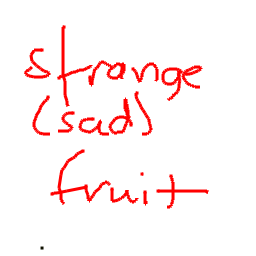 strange
(sad)
fruit